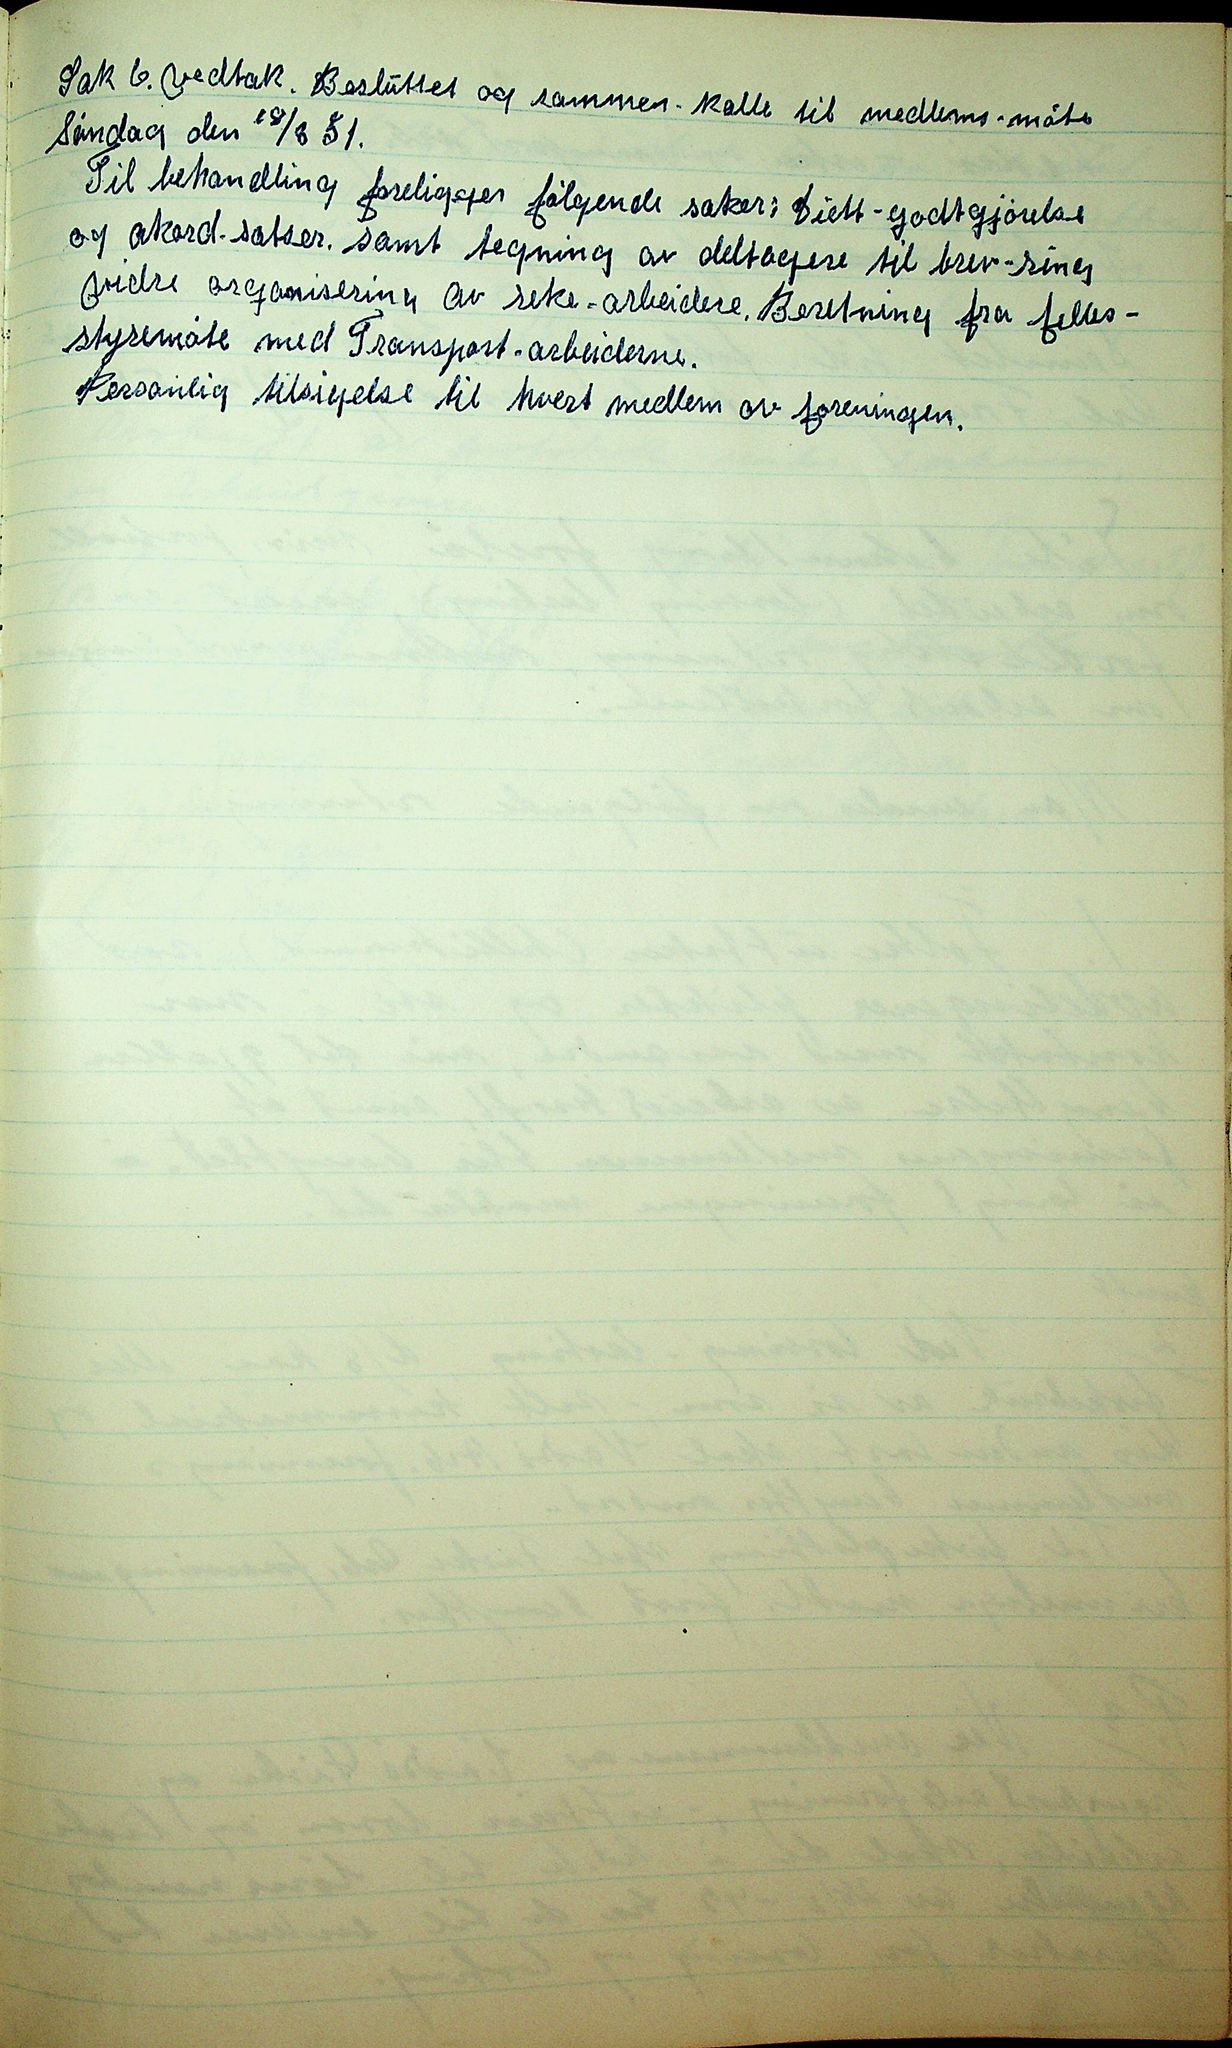 Sak 6. Vedtak. Beslüttet og sammen-kalle til medlems-måte
Sündag den 18/8 51.
Til behandling foreligger fålgende saker: Diett-godtgjórelse
og akord-satser. samt tegning av deltagere til brev-ring
Vidre organisering av reke-arbeidere. Beretning fra felles-
styremåte med Transport-arbeiderne.
Personlig tilsigelse til hvert medlem av foreningen.